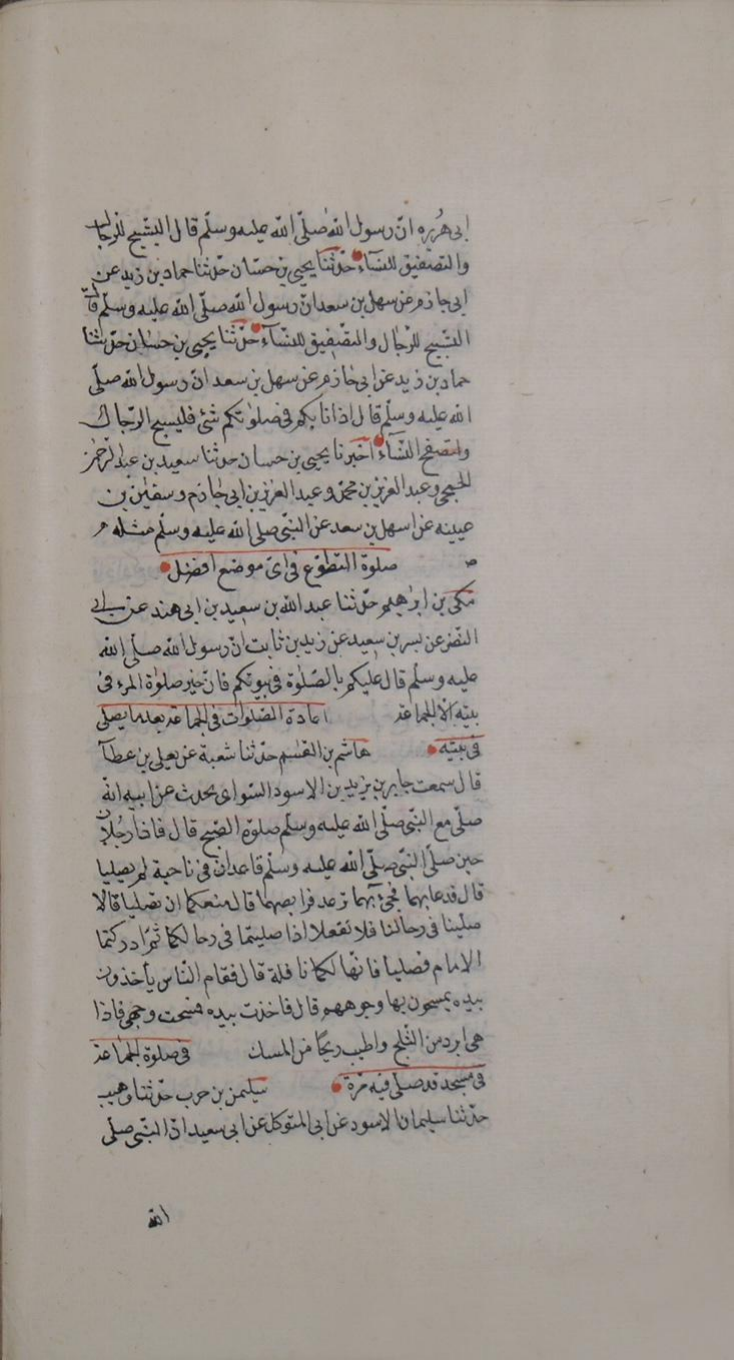 ابى هُرَيره انّ رسول الله صلّى الله عليه وسلّم قال التسبيح للرجال
والتصفيق للنساء حدّثنا يحيى بن حسّان حدّثنا حماد بن زيد عن
ابى حازم عن سهل بن سعد انّ رسول الله صلّى الله عليه وسلّم قال
التسبيح للرّجال والتصفيق للنسّاء حدّثنا يحيى بن حسان حدّثنا
حماد بن زيد عن ابى حازم عن سهل بن سعد انّ رسول الله صلّى
الله عليه وسلّم قال اذا نابكم فى صلوٰتكم شئ فليسبح الرّجال
ولتصفح النسّاء اخبرنا يحيى بن حسان حدثنا سعيد بن عبد الرّحمٰن
الجمحى وعبد العزيز بن محمّد وعبد العزيز بن ابى حازم وسفيٰن بن
عيينه عن سهل بن سعد عن النبّى صلى الله عليه وسلّم مثله
صلوة التطوّع فى اىّ موضع افضل
مكى بن ابرٰهيم حدّثنا عبد الله بن سعيد بن ابى هند عن ابى
النضر عن بسر بن سعيد عن زيد بن ثابت انّ رسول الله صلّى الله
عليه وسلّم قال عليكم بالصّلوة فى بيوتكم فانّ خير صلوة المرء فى
بيته الّا الجماعة اعادة الصّلوات فى الجماعة بعد ما يصلى
فى بيته هاشم بن القٰسم حدّثنا شعبة عن يعلى بن عطآ
قال سمعت جابر بن يزيد بن الاسود السّواى يحدث عن ابيه انّه
صلّى مع النبّى صلّى الله عليه وسلّم صلوة الصّبح قال فاذا رجُلان
حين صلّى النبّى صلّى الله عليه وسلّم قاعدان فى ناحية لم يصليا
قال فدعا بهما فجىء بهما ترعد فرايصهما قال ما منعكما ان تصليا قالا
صلينا فى رحالنا فلا تفعلا اذا صليتما فى رحالكما ثمّ ادركتما
الامام فصليا فانّها لكما نافلة قال فقام النّاس ياخذون
بيده يمسحون بها وجوههم قال فاخذت بيده فمسحت وجهى فاذا
هى ابرد من الثّلج واطيب ريحًا من المسك فى صلوة الجماعة
فى مسجد قد صلّى فيه مرّة سليمٰن بن حرب حدّثنا وهيب
حدّثنا سليمان الاسود عن ابى المتوكل عن ابى سعيد انّ النبّى صلّى
الله